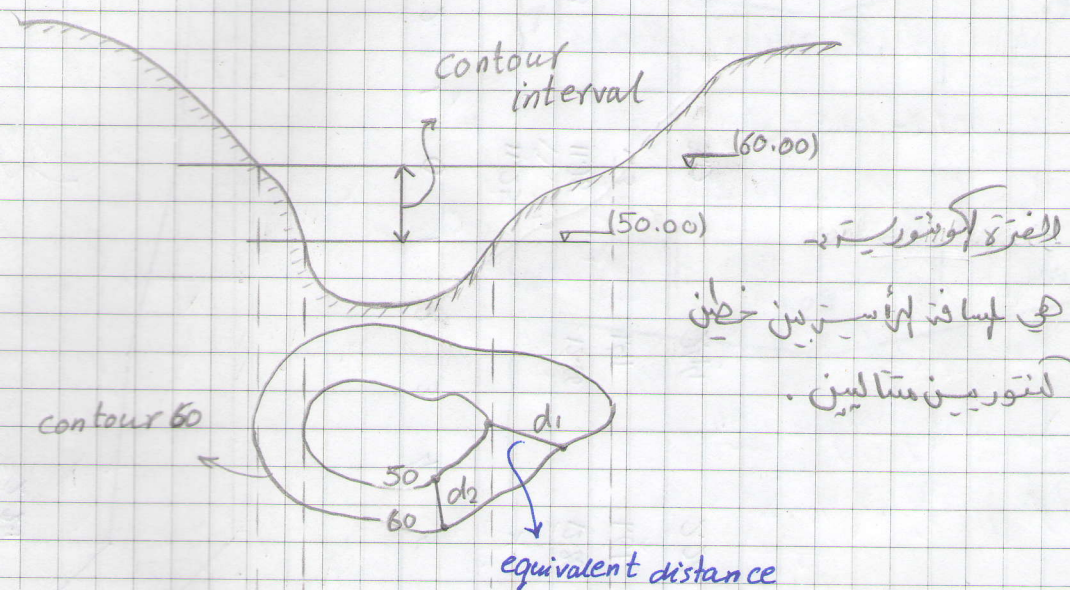 contour
interval
(60.00)
(50.00)
الفترة الكونتورية :-
هي المسافة الرأسية بين خطين
كنتوريين متتاليين .
contour 60
d1
50
d2
60
equivalent distance